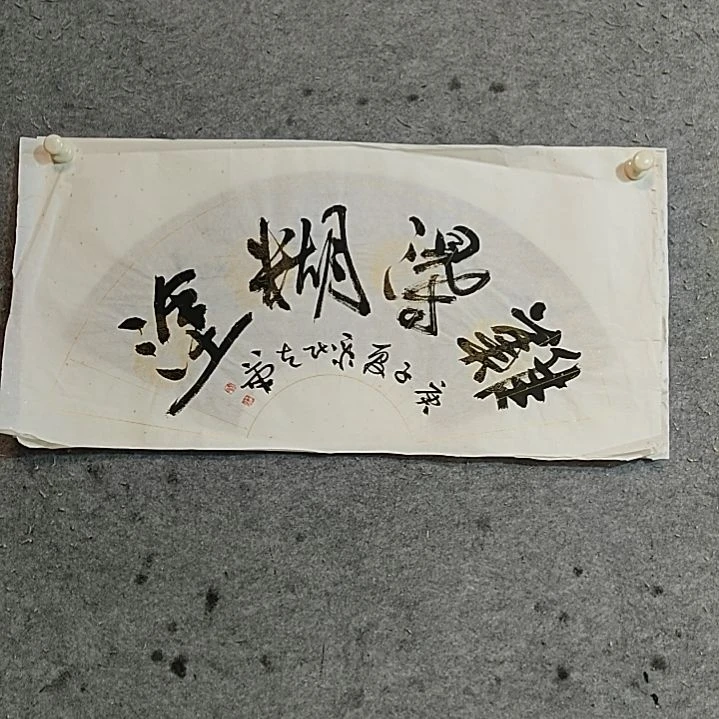 難得糊塗
庚子夏京北左